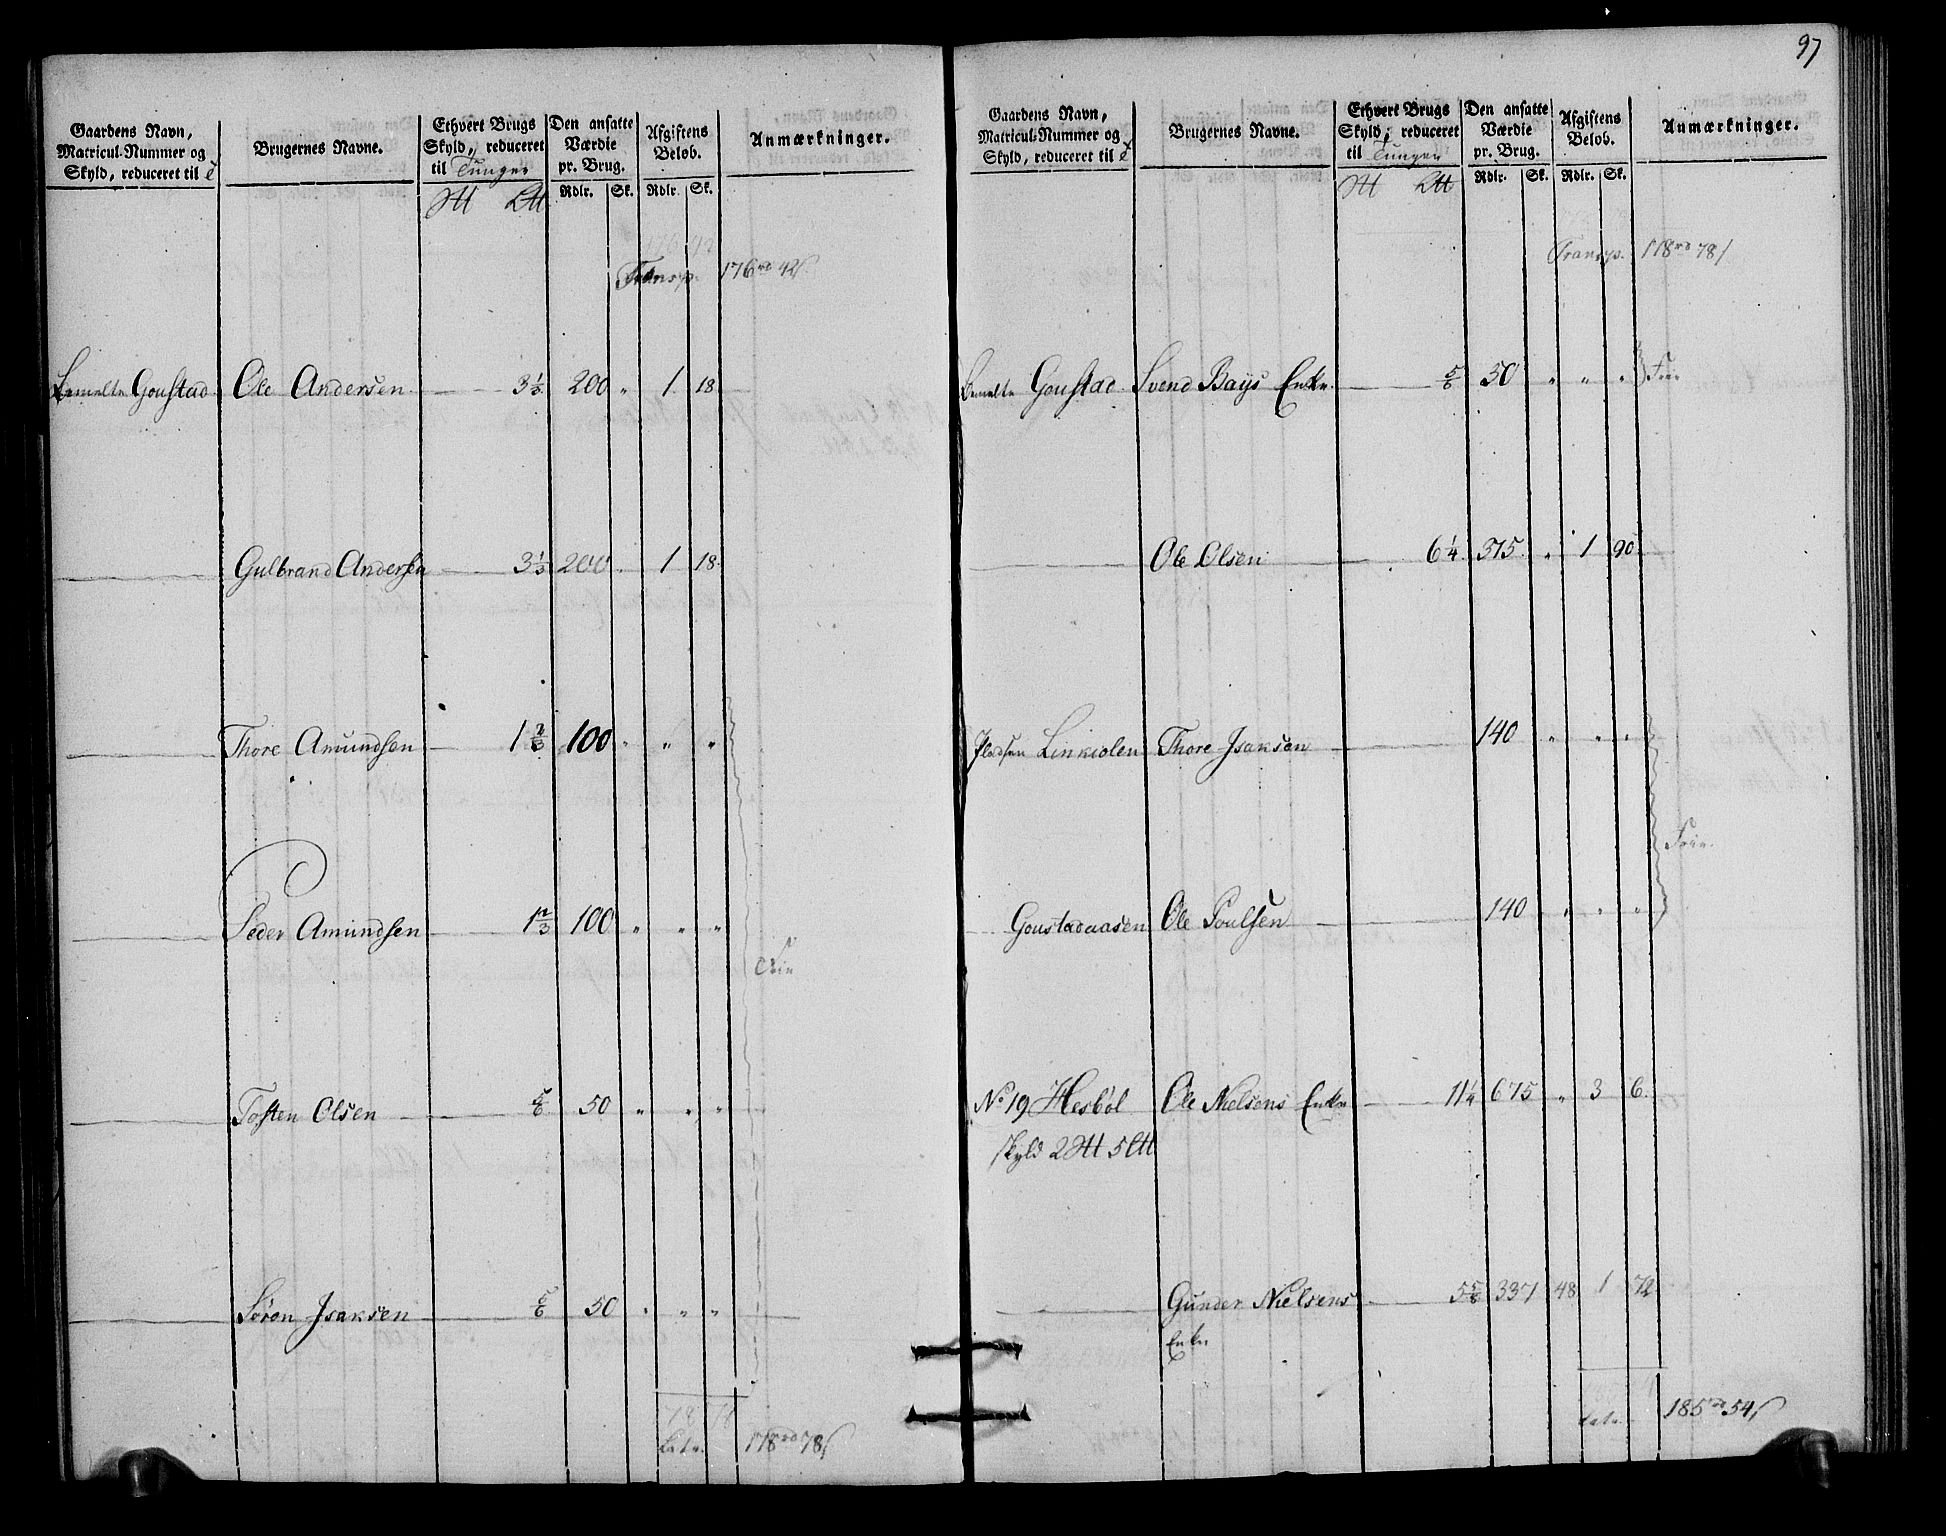 97
Gaardens Navn, Matricul-Nummer og Skyld, reduceret til
Brugernes Navne.
Ethvert Brugs Skyld, reduceret til Tunger
Den ansatte Værdie pr. Brug.
Rdlr. Sk.
Afgiftens Beløb.
Rdlr. Sk.
Anmærkninger.
Transp. 176 rd 42 s
Bemelte Goustad Ole Andersen 3 1/3 200 " 1 18
Gulbrand Andersen 3 1/3 200 . 1 18
Thore Amundsen 1 2/3 100 " " "
Peder Amundsen 1 2/3 100 " " "
Frie
Tosten Olsen 5/6 50 " " "
Søren Isaksen 5/6 50 " " "
Late 178 rd 78 s
Gaardens Navn, Matricul-Nummer og Skyld, reduceret til
Brugernes Navne.
Ethvert Brugs Skyld, reduceret til Tunger
Den ansatte Værdie pr. Brug.
Rdlr. Sk.
Afgiftens Beløb.
Rdlr. Sk.
Anmærkninger.
Transp. 178 rd 78 s
Bemelte Goustad Svend Bays Enke 5/6 50 " " " Frie
Ole Olsen 6 1/4 375 " 1 90
Pladsen Linkiolen Thore Isaksen 140 " " "
Frie
Goustadaasen Ole Poulsen 140 " " "
No 19 Hesbøl Ole Nielsens Enke 11 1/4 675 " 3 6
skyld 2 ℔ 5 L℔
Gunder Nielsens 5 5/8 337 48 1 72
Enke
Late 185 rd 54 s